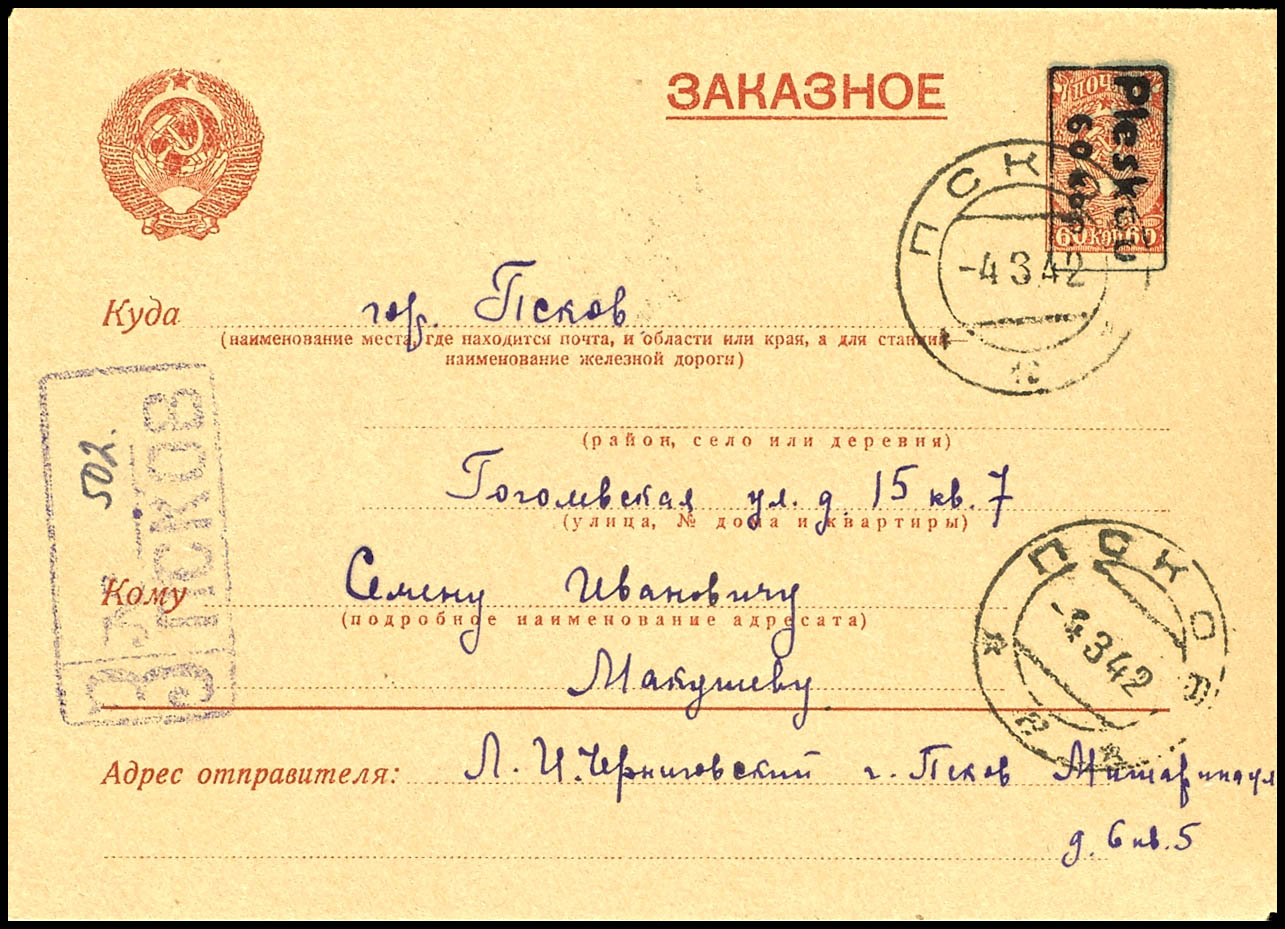 ЗАКАЗНОЕ
ПОЧТА
60 коп 60
Pleskau
60 kop
ПСКОВ
-4 3 42
Куда гор. Псков
(наименование места, где находится почта, и области или края, а для станций—
наименование железной дороги)
(район, село или деревня)
Гоголевская ул. д. 15 кв. 7
(улица, № дома и квартиры)
502.
З ПСКОВ
№
Кому Семену Ивановичу
(подробное наименование адресата)
Макушеву
ПСКОВ
-4 3 42
Адрес отправителя: Л. И. Черниговский г. Псков
д. 6 кв. 5